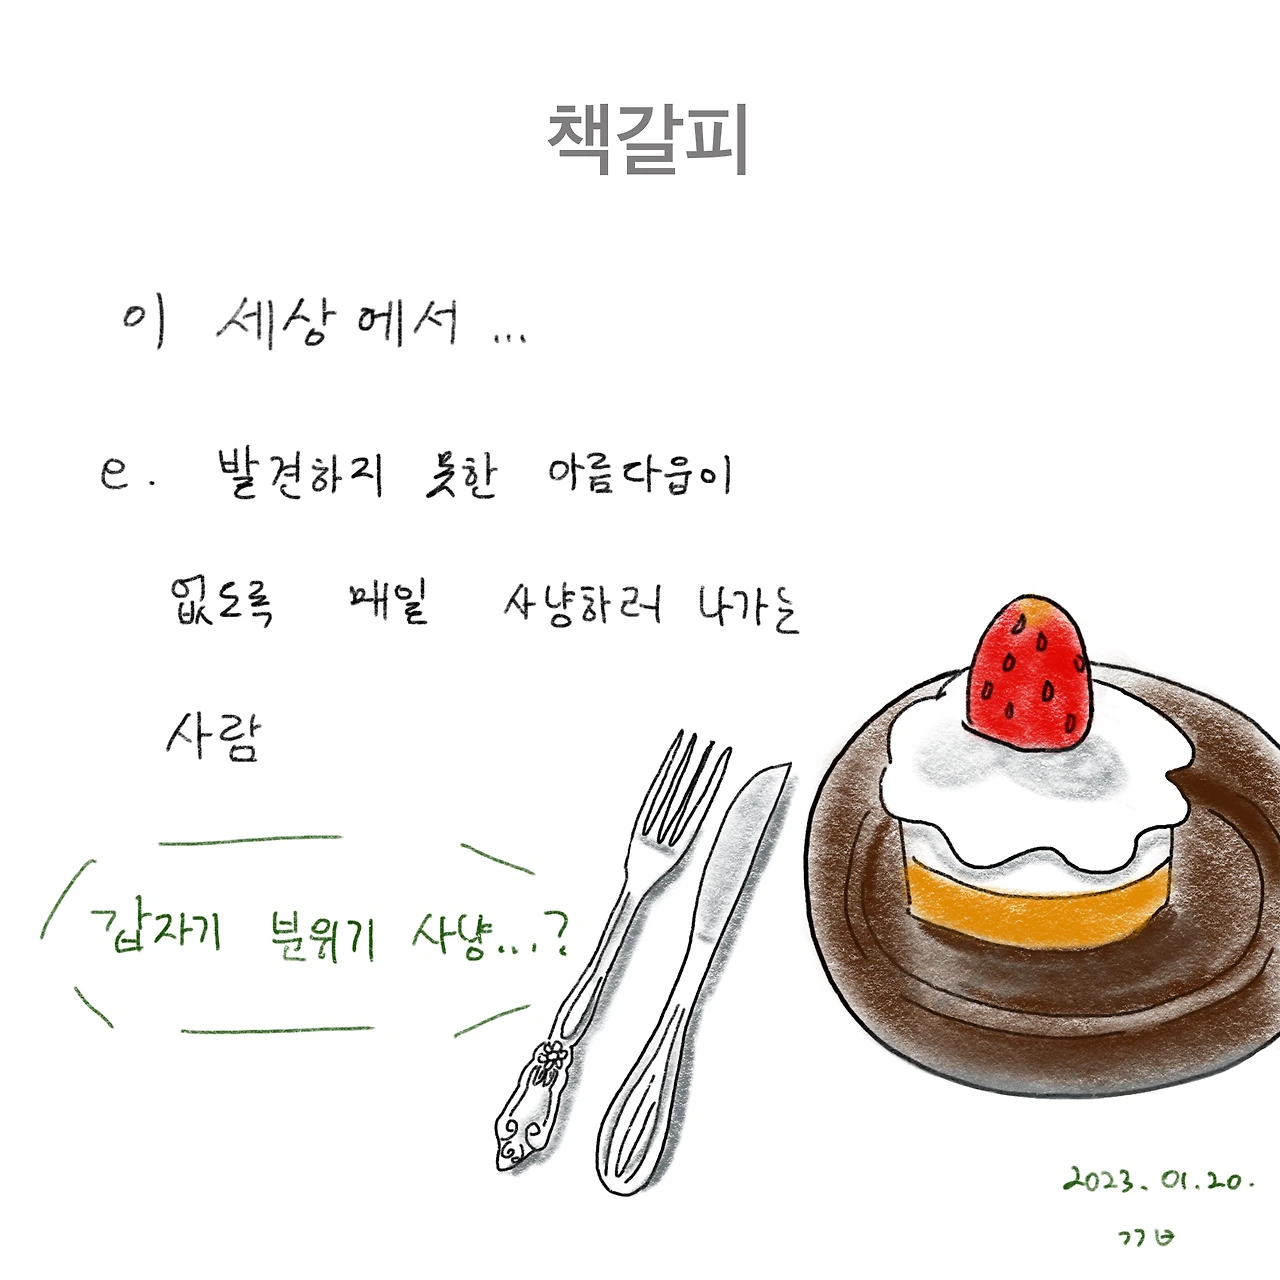 책갈피
이 세상에서 ...
e. 발견하지 못한 아름다웁이
없도록 매일 사냥하러 나가는
사람
갑자기 분위기 사냥...?
2023. 01. 20.